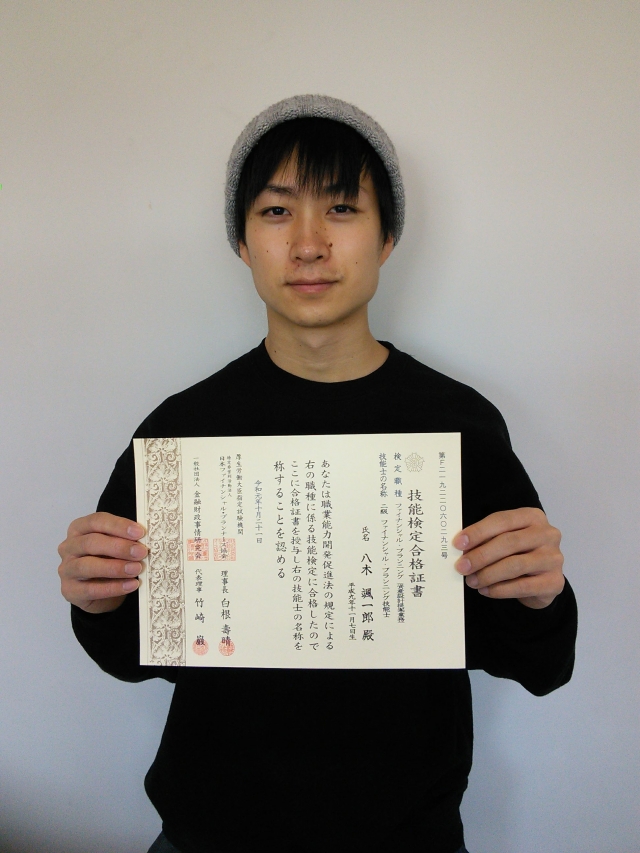 第F二一九二二〇六〇二九三号
技能検定合格証書
検定職種 ファイナンシャル・プランニング（資産設計提案業務）
技能士の名称 二級 ファイナンシャル・プランニング技能士
氏名 八木 颯一郎 殿
平成九年十一月七日生
あなたは職業能力開発促進法の規定による
右の職種に係る技能検定に合格したので
ここに合格証書を授与し右の技能士の名称を
称することを認める
令和元年十月二十一日
厚生労働大臣指定試験機関
特定非営利活動法人
日本ファイナンシャル・プランナーズ協会
理事長 白根 壽晴
一般社団法人 金融財政事情研究会
代表理事 竹崎 巌